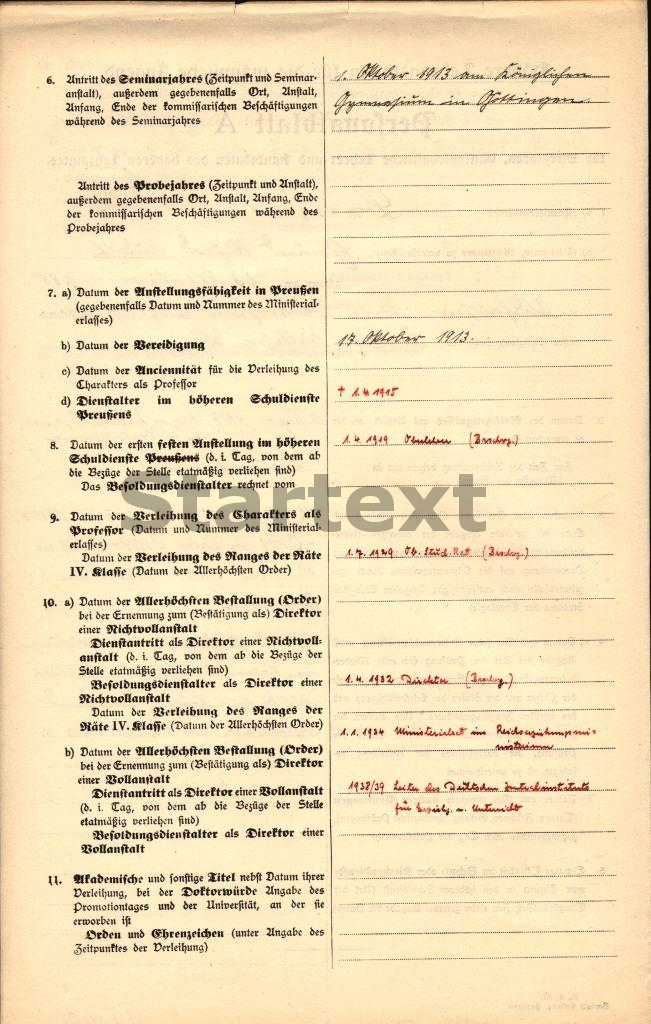 6. Antritt des Seminarjahres (Zeitpunkt und Seminar-
anstalt), außerdem gegebenenfalls Ort, Anstalt,
Anfang, Ende der kommissarischen Beschäftigungen
während des Seminarjahres
1. Oktober 1913 am Königlichen
Gymnasium in Göttingen.
Antritt des Probejahres (Zeitpunkt und Anstalt),
außerdem gegebenenfalls Ort, Anstalt, Anfang, Ende
der kommissarischen Beschäftigungen während des
Probejahres
7. a) Datum der Anstellungsfähigkeit in Preußen
(gegebenenfalls Datum und Nummer des Ministerial-
erlasses)
b) Datum der Vereidigung
17. Oktober 1913.
c) Datum der Anciennität für die Verleihung des
Charakters als Professor
d) Dienstalter im höheren Schuldienste
Preußens
† 1.4.1915
8. Datum der ersten festen Anstellung im höheren
Schuldienste Preußens (d. i. Tag, von dem ab
die Bezüge der Stelle etatmäßig verliehen sind)
Das Besoldungsdienstalter rechnet vom
1.4.1919 (Brschwg.)
Startext
9. Datum der Verleihung des Charakters als
Professor (Datum und Nummer des Ministerial-
erlasses)
Datum der Verleihung des Ranges der Räte
IV. Klasse (Datum der Allerhöchsten Order)
1.7.1929 Ob. Stud. Rat (Brschwg.)
10. a) Datum der Allerhöchsten Bestallung (Order)
bei der Ernennung zum (Bestätigung als) Direktor
einer Nichtvollanstalt
Dienstantritt als Direktor einer Nichtvoll-
anstalt (d. i. Tag, von dem ab die Bezüge der
Stelle etatmäßig verliehen sind)
Besoldungsdienstalter als Direktor einer
Nichtvollanstalt
Datum der Verleihung des Ranges der
Räte IV. Klasse (Datum der Allerhöchsten Order)
1.4.1932 Direktor (Brschwg.)
1.1.1934 Ministerialrat im Reichserziehungsmi-
nisterium
b) Datum der Allerhöchsten Bestallung (Order)
bei der Ernennung zum (Bestätigung als) Direktor
einer Vollanstalt
Dienstantritt als Direktor einer Vollanstalt
(d. i. Tag, von dem ab die Bezüge der Stelle
etatmäßig verliehen sind)
Besoldungsdienstalter als Direktor einer
Vollanstalt
1938/39 Leiter des Deutschen Zentralinstituts
für Erziehg. u. Unterricht
11. Akademische und sonstige Titel nebst Datum ihrer
Verleihung, bei der Doktorwürde Angabe des
Promotionstages und der Universität, an der sie
erworben ist
Orden und Ehrenzeichen (unter Angabe des
Zeitpunktes der Verleihung)